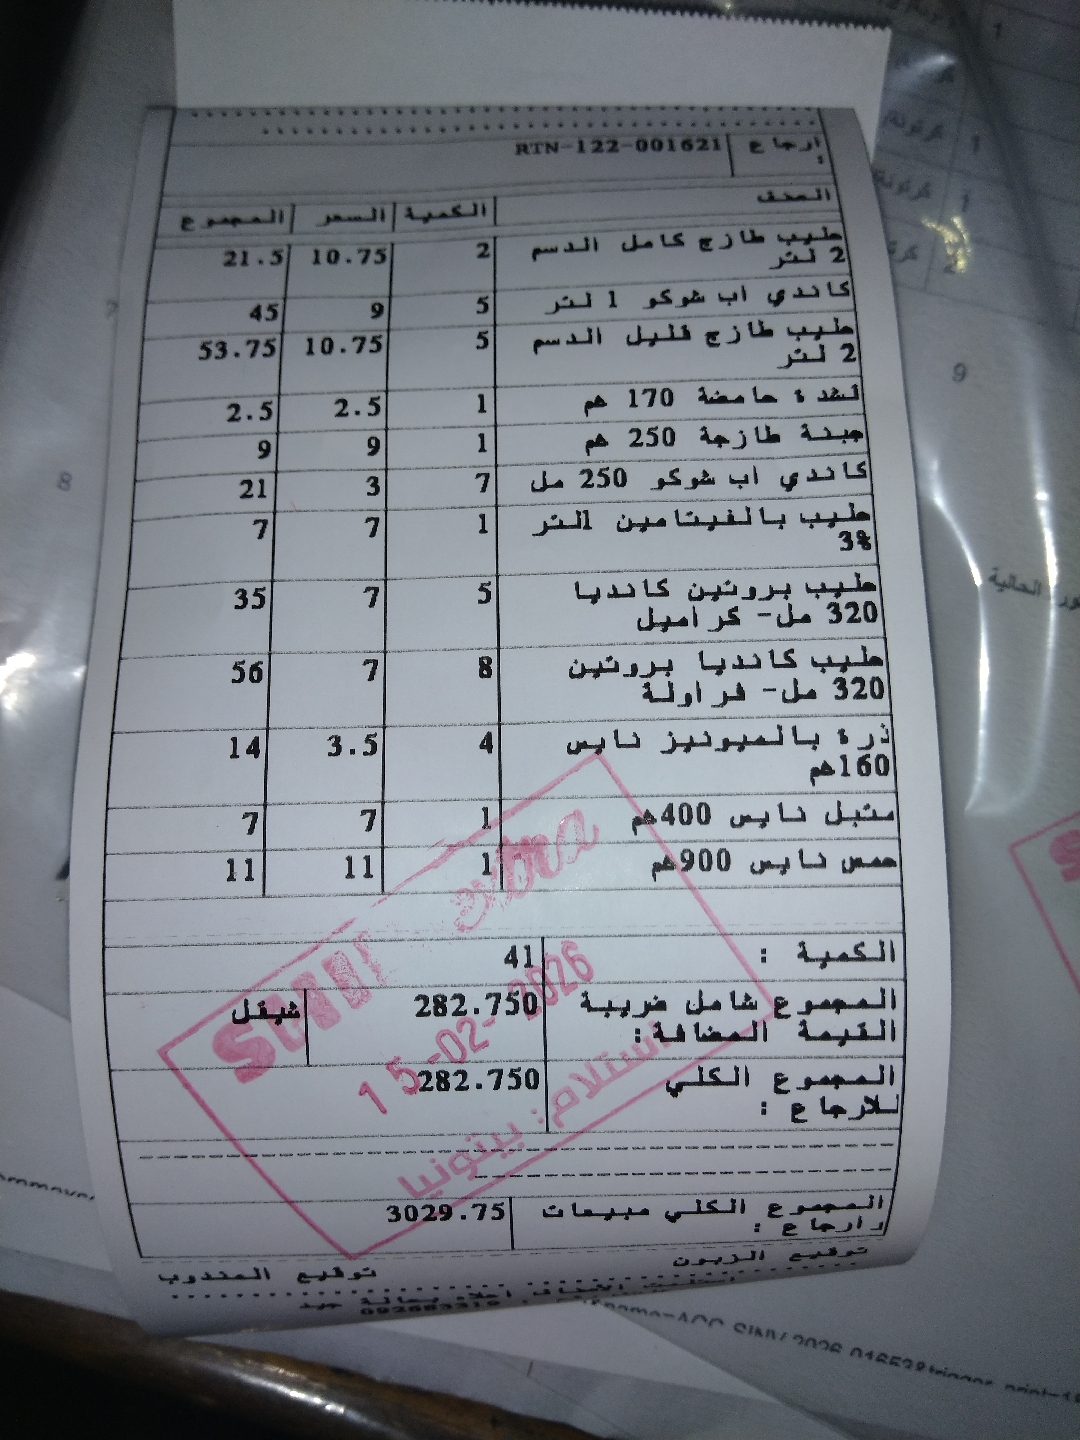 ارجاع : RTN-122-001621
الصنف الكمية السعر المجموع
حليب طازج كامل الدسم 2 10.75 21.5
2 لتر
كاندي اب شوكو 1 لتر 5 9 45
حليب طازج قليل الدسم 5 10.75 53.75
2 لتر
قشدة حامضة 170 غم 1 2.5 2.5
جبنة طازجة 250 غم 1 9 9
كاندي اب شوكو 250 مل 7 3 21
حليب بالفيتامين 1لتر 1 7 7
3%
حليب بروتين كانديا 5 7 35
320 مل- كراميل
حليب كانديا بروتين 8 7 56
320 مل- فراولة
ذرة بالميونيز نايس 4 3.5 14
160غم
متبل نايس 400غم 1 7 7
حمص نايس 900غم 1 11 11
الكمية : 41
المجموع شامل ضريبة 282.750 شيقل
القيمة المضافة:
المجموع الكلي 282.750
للارجاع :
extra
15-02-2026
استلام: بيتونيا
المجموع الكلي مبيعات 3029.75
وارجاع :
توقيع الزبون
توقيع المندوب
كرتونة 1
كرتونة 1
8
9
الحالية